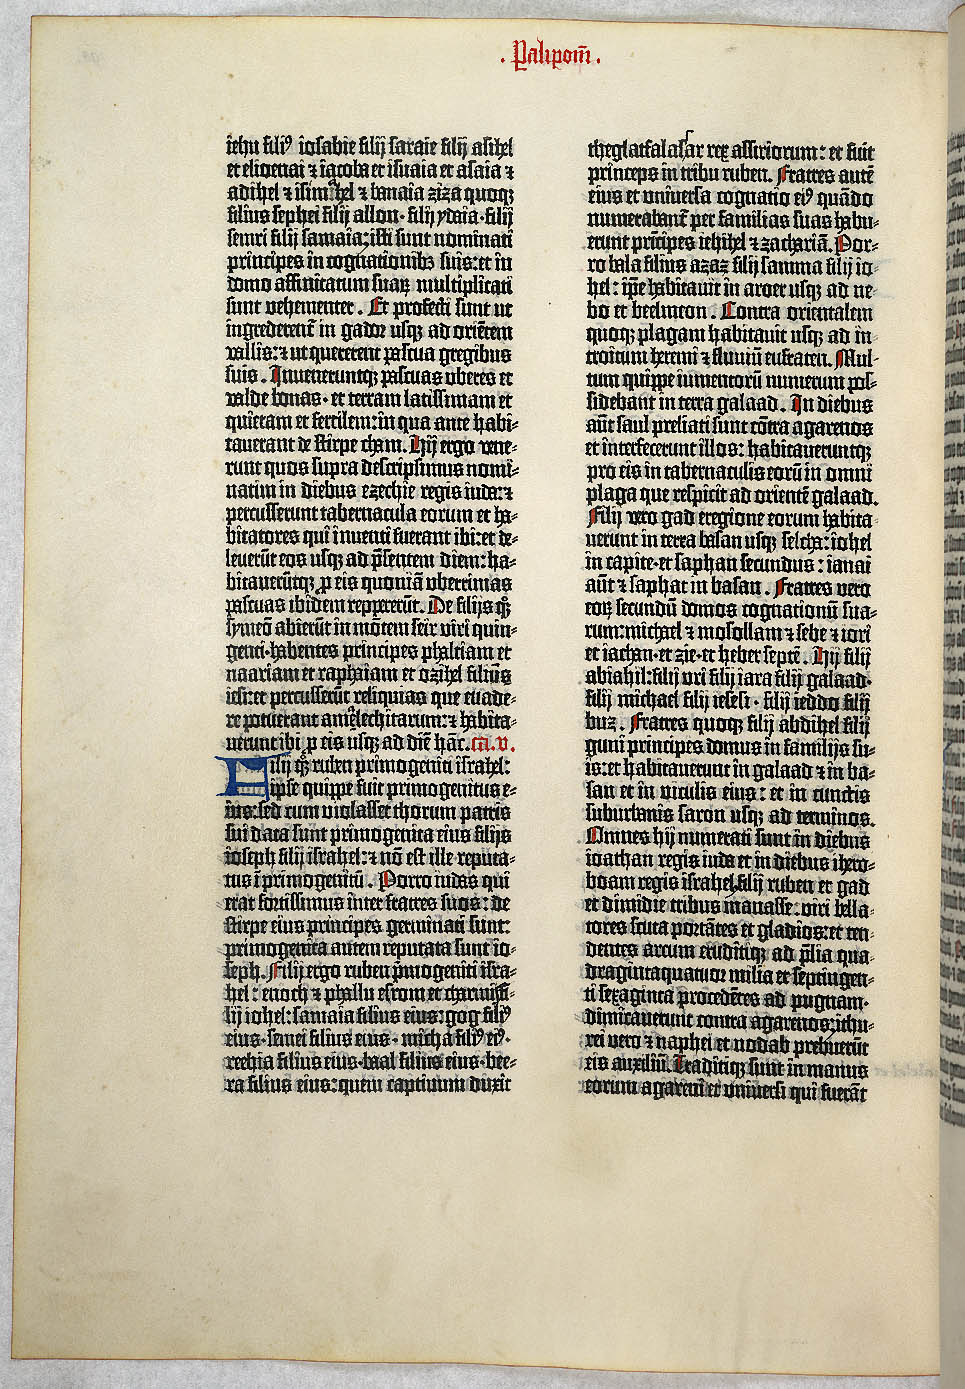 . Palipom̄ .
iehu filiꝰ iosabie filij saraie filij asihel
et elioenai ⁊ iacoba et isuaia et asaia ⁊
adihel ⁊ isimihel ⁊ banaia ziza quoqꝫ
filius sephei filij allon· filij ydaia·filij
semri filij samaia: isti sunt nominati
principes in cognationibꝫ suis: et in
domo affinitatum suaꝝ multiplicati
sunt vehementer . Et profecti sunt ut
ingrederent̄ in gador usqꝫ ad oriētem
vallis: ⁊ ut quererent pascua gregibus
suis . Inueneruntqꝫ pascuas uberes et
valde bonas· et terram latissimam et
quietam et fertilem: in qua ante habi-
tauerant de stirpe cham. Hij ergo vene-
runt quos supra descripsimus nomi-
natim in diebus ezechie regis iuda: ⁊
percusserunt tabernacula eorum et ha-
bitatores qui inuenti fuerant ibi: et de-
leuerūt eos usqꝫ ad p̄sentem diem: ha-
bitauerūtqꝫ ꝓ eis quoniā uberrimas
pascuas ibidem reppererūt. De filijs qꝫ
symeō abierūt in mōtem seir viri quin-
genti·habentes principes phaltiam et
naariam et raphaiam et ozihel filius
iesi: et percusserūt reliquias que euade-
re potuerant amalechitarum: ⁊ habita-
uerunt ibi ꝓ eis usqꝫ ad diē hāc. ca̅.v.
Filij qꝫ ruben primogeniti israhel:
ipse quippe fuit primogenitus e-
ius: sed cum violasset thorum patris
sui data sunt primogenita eius filijs
ioseph filij israhel: ⁊ nō est ille reputa-
tus ī primogenitū. Porro iudas qui
erat fortissimus inter fratres suos: de
stirpe eius principes germinati sunt:
primogenita autem reputata sunt io-
seph. Filij ergo ruben p̄mogeniti isra-
hel: enoch ⁊ phallu esrom et charmi. fi-
lij iohel: samaia filius eius: gog filiꝰ
eius· semei filius eius· micha filiꝰ eiꝰ·
rechia filius eius·baal filius eius·bee-
ra filius eius: quem captiuum duxit
theglatfalasar rex assiriorum: et fuit
princeps in tribu ruben. Fratres autē
eius et vniuersa cognatio eiꝰ quādo
numerabant̄ per familias suas habu-
erunt prīcipes iehihel ⁊ zachariā. Por-
ro bala filius azaz filij samma filij io-
hel: ip̄e habitauit in aroer usqꝫ ad ne-
bo et beelmeon. Contra orientalem
quoqꝫ plagam habitauit usqꝫ ad in-
troitum heremi ⁊ fluuiū eufraten. Mul-
tum quippe iumentorū numerum pos-
sidebant in terra galaad. In diebus
aūt saul preliati sunt cōtra agarenos
et interfecerunt illos: habitaueruntqꝫ
pro eis in tabernaculis eorū in omni
plaga que respicit ad orientē galaad.
Filij vero gad eregione eorum habita-
uerunt in terra basan usqꝫ selcha: iohel
in capite·et saphan secundus: ianai
aūt ⁊ saphat in basan . Fratres vero
eoꝝ secundū domos cognationū sua-
rum: michael ⁊ mosollam ⁊ sebe ⁊ iori
et iachan·et zie·et heber septē. Hij filij
abiahil: filij vri filij iara filij galaad·
filij michael filij iesesi· filij ieddo filij
buz. Fratres quoqꝫ filij abdihel filij
guni principes domus in familijs su-
is: et habitauerunt in galaad ⁊ in ba-
san et in viculis eius: et in cunctis
suburbanis saron usqꝫ ad terminos.
Omnes hij numerati sunt in diebus
ioathan regis iuda et in diebus ihero-
boam regis israhel. filij ruben et gad
et dimidie tribus manasse: viri bella-
tores scuta portātes et gladios: et ten-
dentes arcum eruditiqꝫ ad p̄lia qua-
dragintaquatuor milia et septingen-
ti sexaginta procedētes ad pugnam·
dimicauerunt contra agarenos: ithu-
rei vero ⁊ naphei et nodab prebuerūt
eis auxiliū. Traditiqꝫ sunt in manus
eorum agareni et vniuersi qui fuerāt